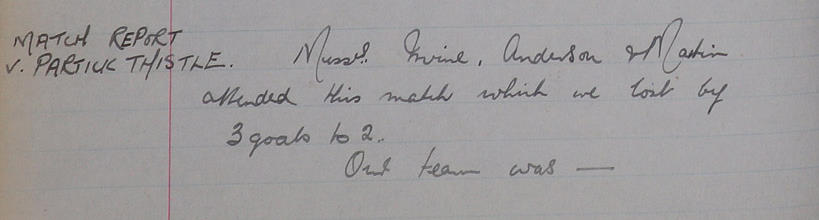 MATCH REPORT
V. PARTICK THISTLE.
Messrs. Irvine, Anderson & Martin
attended this match which we lost by
3 goals to 2.
Our team was —